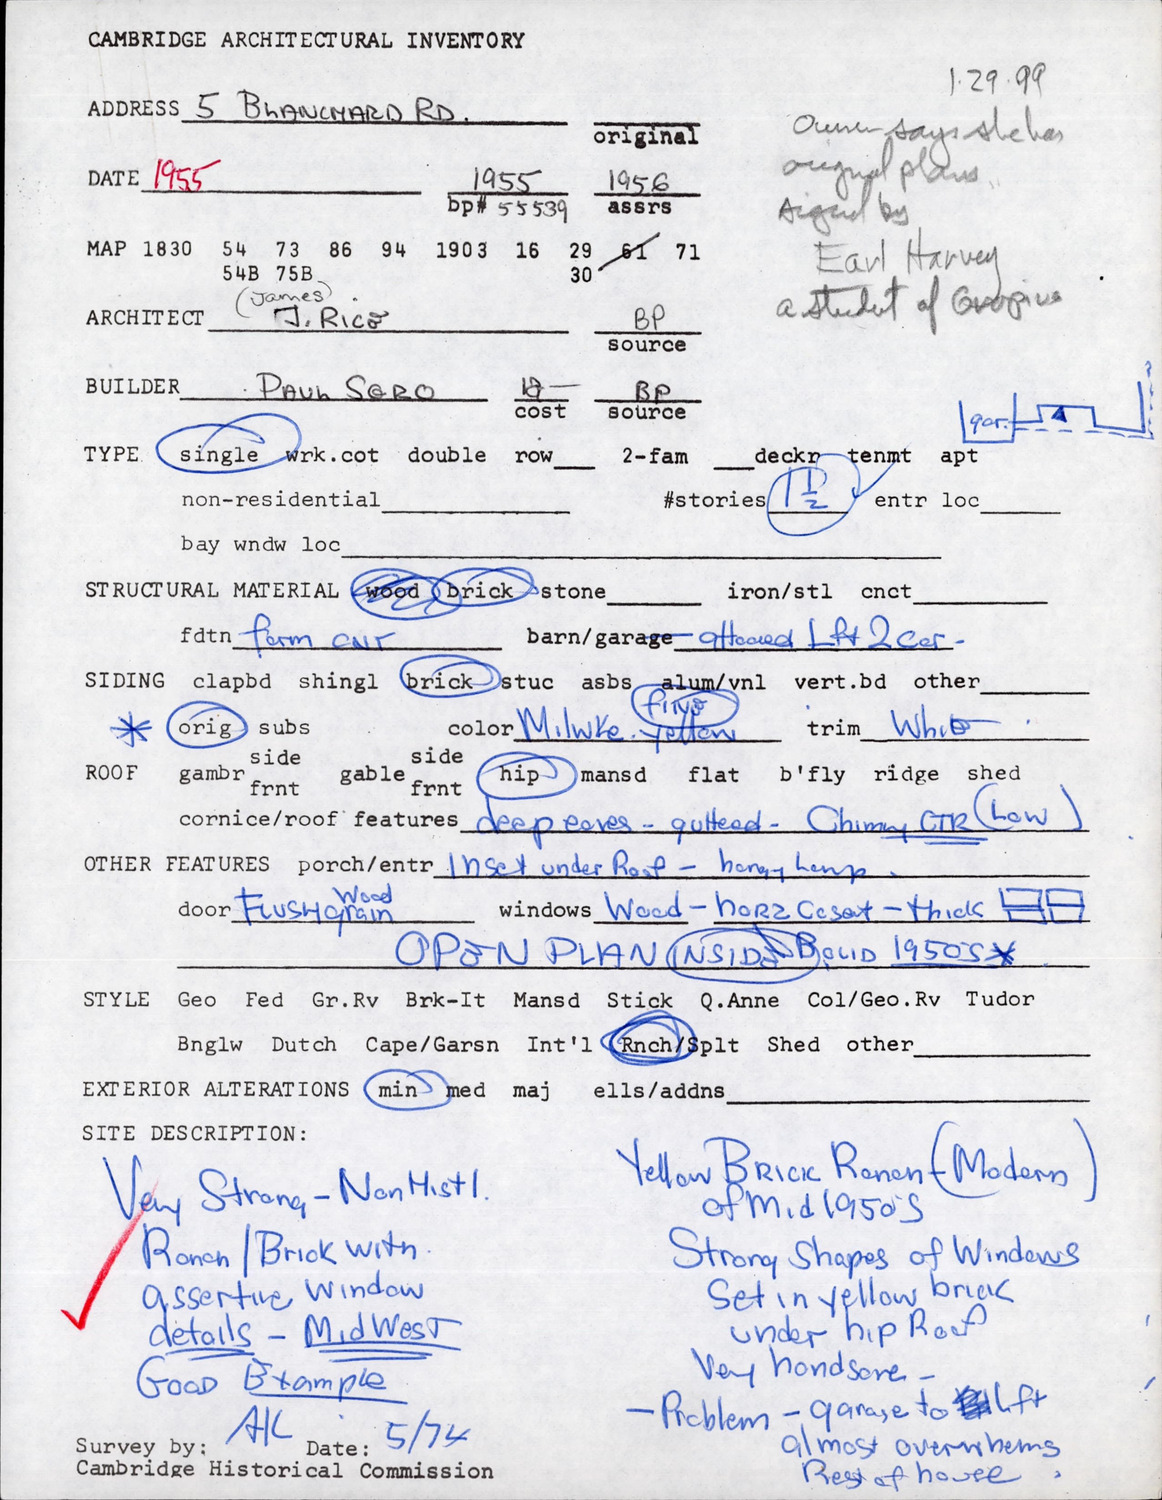 CAMBRIDGE ARCHITECTURAL INVENTORY
1·29·99
Owner says she has
original plans
signed by
Earl Harvey
a student of Gropius
ADDRESS 5 BLANCHARD RD.
original
DATE 1955 1955 1956
bp# 55539 assrs
MAP 1830 54 73 86 94 1903 16 29 61 71
54B 75B 30
(James)
ARCHITECT J. RICE BP
source
BUILDER PAUL SERO BP
cost source
gar.
TYPE single wrk.cot double row 2-fam deckr tenmt apt
non-residential #stories 1 1/2 entr loc
bay wndw loc
STRUCTURAL MATERIAL wood brick stone iron/stl cnct
fdtn form CNT barn/garage attached Lft 2 car -
SIDING clapbd shingl brick stuc asbs alum/vnl vert.bd other
fine
* orig subs color Milwke. yellow trim White
side side
ROOF gambr gable hip mansd flat b'fly ridge shed
frnt frnt
cornice/roof features deep eaves - guttered - Chimny CTR (Low)
OTHER FEATURES porch/entr Inset under Roof - hangg Lamp.
Wood
door FLUSH grain windows Wood - horz Casmt - thick
OPEN PLAN INSIDE SOLID 1950'S *
STYLE Geo Fed Gr.Rv Brk-It Mansd Stick Q.Anne Col/Geo.Rv Tudor
Bnglw Dutch Cape/Garsn Int'l Rnch/Splt Shed other
EXTERIOR ALTERATIONS min med maj ells/addns
SITE DESCRIPTION:
Very Strong - Non Hist'l.
Ranch/Brick with
assertive window
details - MidWest
Good Example
Yellow BRICK Ranch - (Modern)
of Mid 1950'S
Strong Shapes of Windows
Set in yellow brick
under hip Roof
Very handsome -
- Problem - garage to Lft
almost overwhelms
Rest of house.
Survey by: AK Date: 5/74
Cambridge Historical Commission